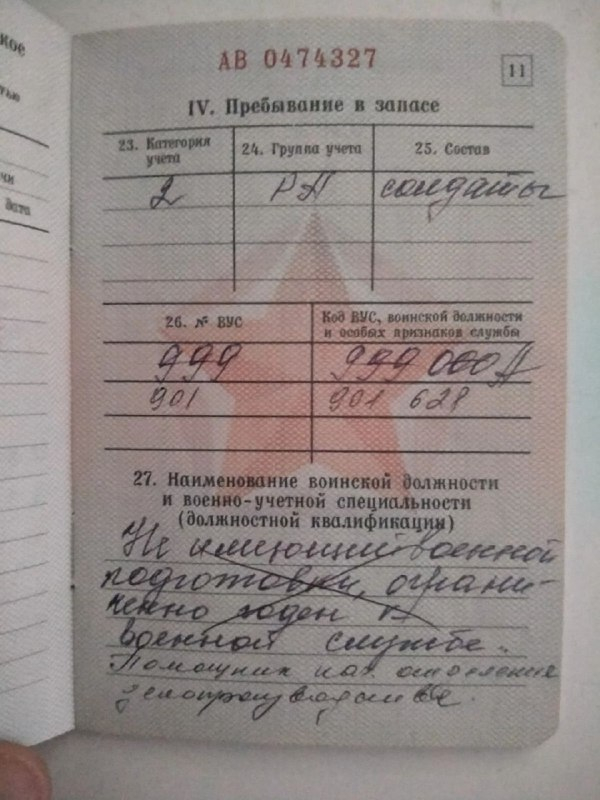 АВ 0474327
11
IV. Пребывание в запасе
23. Категория учета
24. Группа учета
25. Состав
2
РА
солдаты
26. № ВУС
Код ВУС, воинской должности и особых признаков службы
999
999 000А
901
901 628
27. Наименование воинской должности
и военно-учетной специальности
(должностной квалификации)
Не имеющий военной
подготовки, ограни-
ченно годен к
военной службе.
Помощник нач. отделения
делопроизводства.
кое
дата